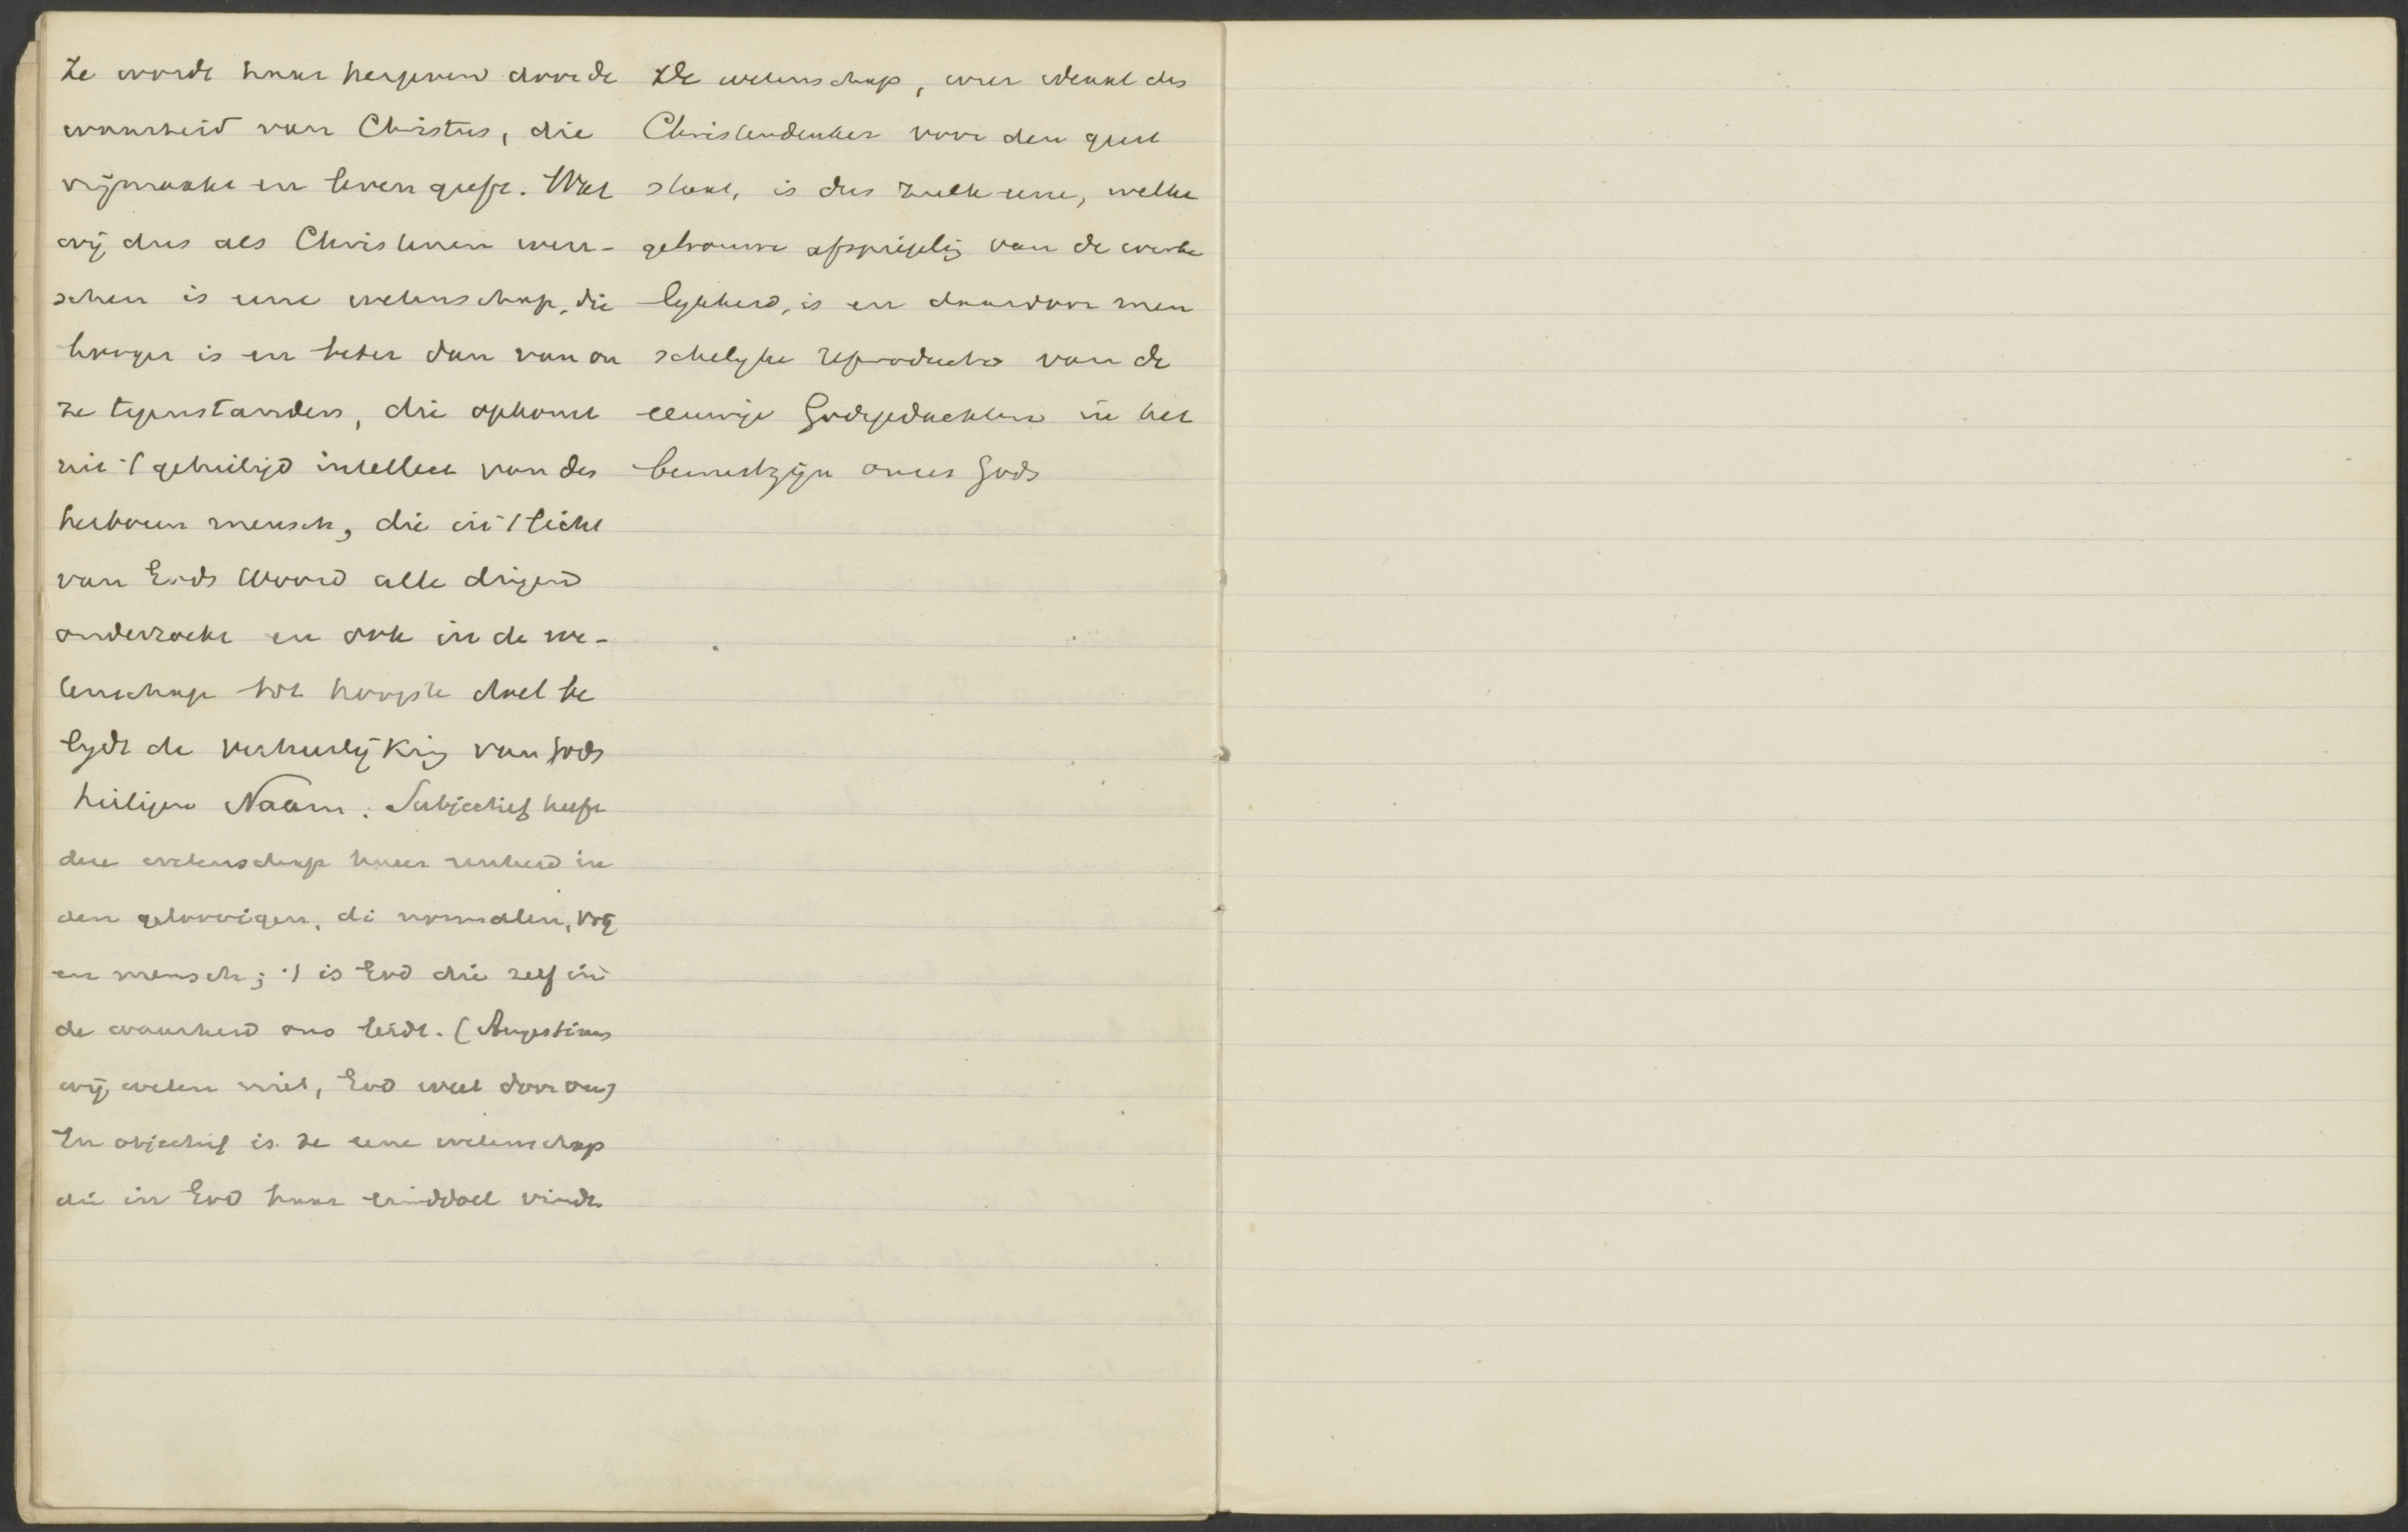 Ze wordt haar hergeven door de
waarheid van Christus, die
vrijmaakt en leven geeft. Wat
wij dus als Christenen wen-
schen is eene wetenschap, die
hooger is en beter dan van on
ze tegenstanders, die opkomt
uit 't geheiligd intellect van den
herboren mensch, die in 't licht
van Gods Woord alle dingen
onderzoekt en ook in de we-
tenschap tot hoogste doel be
lydt de verheerlijking van Gods
heiligen Naam. Subjectief heeft
die wetenschap haar eenheid in
den geloovigen, di normalen,
en mensch; 't is God die zelf in
de waarheid ons leidt. (Augustinus
wij weten niet, God weet door ons)
En objectief is ze eene wetenschap
die in God haar einddoel vindt.
De wetenschap, wier ideaal den
Christendenker voor den geest
staat, is dus zulk eene, welke
getrouwe afspiegeling van de werke
lykheid, is en daardoor men
schelyke reproductie van de
eeuwige Godsgedachten in het
bewustzijn onzes Gods